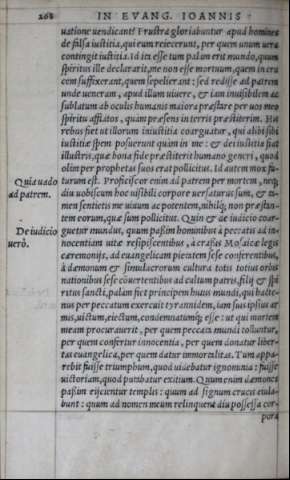 208 IN EVANG. IOANNIS
uatione uendicant? Frustra gloriabuntur apud homines
de falsa iustitia, qui eum reiecerunt, per quem unum uera
contingit iustitia. Id ita esse tum palam erit mundo, quum
spiritus ille declararit, me non esse mortuum, quem in cru
cem suffixerant, quem sepelierant: sed redisse ad patrem
unde ueneram, apud illum uiuere, & iam inuisibilem ac
sublatum ab oculis humanis maiora præstare per uos meo
spiritu afflatos, quàm præsens in terris præstiterim. His
rebus fiet ut illorum iniustitia coarguatur, qui alibi sibi
iustitiæ spem posuerunt quàm in me: & dei iustitia fiat
illustris, quæ bona fide præstiterit humano generi, quod
olim per prophetas suos erat pollicitus. Id autem mox fu-
Quia uado ad patrem.
turum est. Proficiscor enim ad patrem per mortem, neq;
diu uobiscum hoc uisibili corpore uersaturus sum, & ta-
men sentietis me uiuum ac potentem, nihilq; non præstan-
tem eorum, quæ sum pollicitus. Quin & de iudicio coar-
De iudicio uerò.
guetur mundus, quum passim hominibus à peccatis ad in-
nocentiam uitæ resipiscentibus, à crassis Mosaicæ legis
cæremonijs, ad euangelicam pietatem sese conferentibus,
à dæmonum & simulacrorum cultura totis totius orbis
nationibus sese conuertentibus ad cultum patris, filij & spi
ritus sancti, palàm fiet principem huius mundi, qui hacte-
nus per peccatum exercuit tyrannidem, iam suis ipsius ar-
mis, uictum, eiectum, condemnatumq; esse: ut qui mortem
meam procurauerit, per quem peccata mundi tolluntur,
per quem confertur innocentia, per quem donatur liber-
tas euangelica, per quem datur immortalitas. Tum appa-
rebit fuisse triumphum, quod uidebatur ignominia: fuisse
uictoriam, quod putabatur exitium. Quum enim dæmones
passim eijcientur templis: quum ad signum crucis eiula-
bunt: quum ad nomen meum relinquent diu possessa cor-
pora